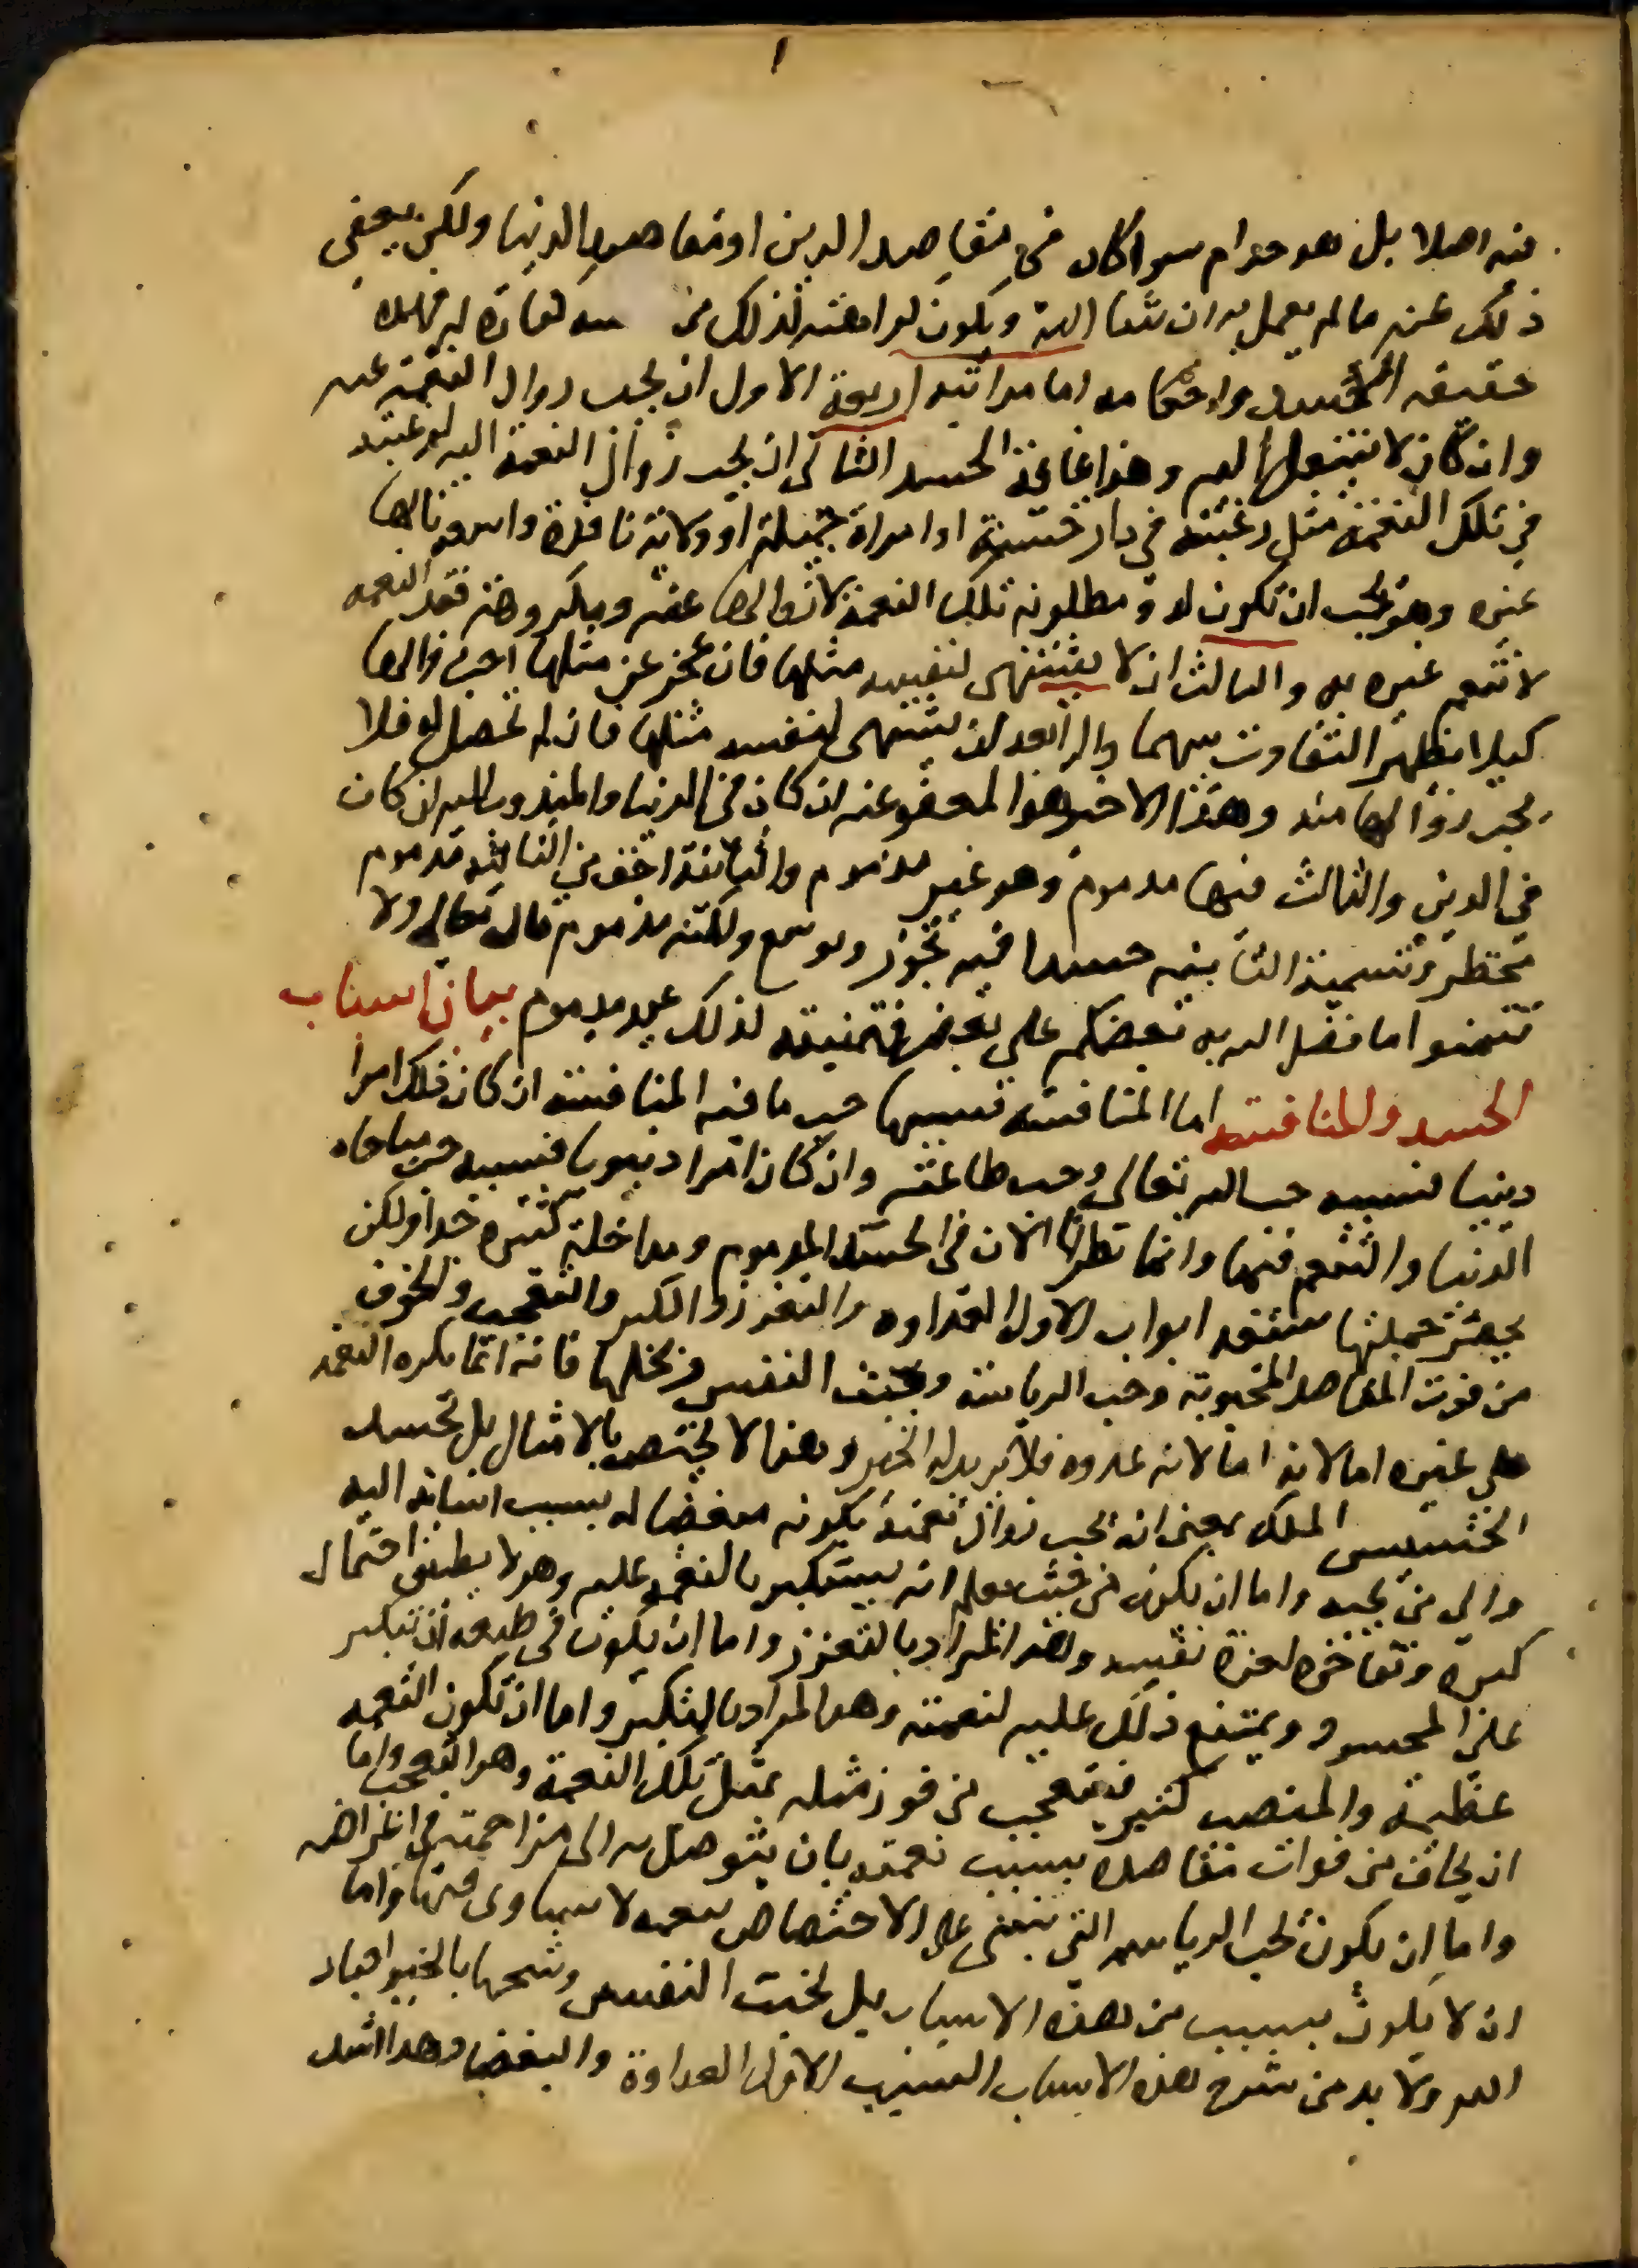 ١
فيه اصلا بل هو حرام سوا كان في مقاصد الدين او مقاصد الدنيا ولكن يعفى
ذلك عنه ما لم يعمل به ان شا الله ويكون لذلك من كفارة له فهذه
حقيقه الحسد واحكامه اما مراتبه اربعة الاول ان يحب زوال النعمة عنه
وان كان لا تنتقل اليه وهذا غاية الحسد الثاني ان يحب زوال النعمة اليه لرغبته
في تلك النعمة مثل رغبته في دار حسنة او امراة جميلة او ولاية نافذة نالها
غيره وهو يحب ان تكون له ومطلوبه تلك النعمة لا زوالها عنه ومكروهه فقد النعمه
لا تنعم غيره به والثالث ان لا يشتهى لنفسه مثلها فان عجز عن مثلها احب زوالها
كيلا يظهر التفاوت بينهما والرابعه ان يشتهى لنفسه مثلها فان لم تحصل له فلا
يحب زوالها منه وهذا الاخير هو المعفو عنه ان كان في الدنيا والمندوب اليه ان كان
في الدين والثالث فيها مدموم وهو غير مذموم والثانية اخف من الثالثه مدموم
محتظر وتسمية الثانيه حسدا فيه تجوز وتوسع ولكنه مذموم قال تعالى ولا
تتمنوا ما فضل الله به بعضكم على بعض فتمنيته لذلك غير مدموم بيان اسباب
الحسد والمنافسه اما المنافسه فسببها حب ما فيه المنافسه ان كان ذلك امرا
دينيا فسببه حب الله تعالى وحب طاعته وان كان امرا دنيويا فسببه حب مباحاه
الدنيا والتنعم فيها وانما نظرنا الان في الحسد المدموم ومداخله كثيره جدا ولكن
يحصر جملتها سبعه ابواب الاول العداوه والتعزز والكبر والتعجب والخوف
من فوت المقاصد المحبوبة وحب الرياسة وخبث النفس وبخلها فانه انما يكره النعمه
على غيره اما لانه اما لانه عدوه فلا يريد له الخير وهذا لا يختص بالامثال بل يحسد
الخسيس الملك بمعنى انه يحب زوال نعمته بكونه مبغضا له بسبب اسايته اليه
والى من يحبه واما ان يكون من حيث يعلم انه يستكبر بالنعمه عليه وهو لا يطيق احتمال
كبره وتفاخره لعزة نفسه وهو المراد بالتعزز واما ان يكون في طبعه ان يتكبر
على المحسود ويمتنع ذلك عليه لنعمته وهو المراد بالتكبر واما ان تكون النعمه
عظيمة والمنصب كبير فيتعجب من فوز مثله بمثل تلك النعمة وهو التعجب واما
ان يخاف من فوات مقاصده بسبب نعمته بان يتوصل به الى مزاحمته في اغراضه
واما ان يكون لحب الرياسه التي تبتنى على الاختصاص بنعمه لا يساوى فيها واما
ان لا يكون بسبب من هذه الاسباب بل لخبث النفس وشحها بالخير لعباد
الله ولا بد من شرح هذه الاسباب السبب الاول العداوة والبغضا وهذا اشد